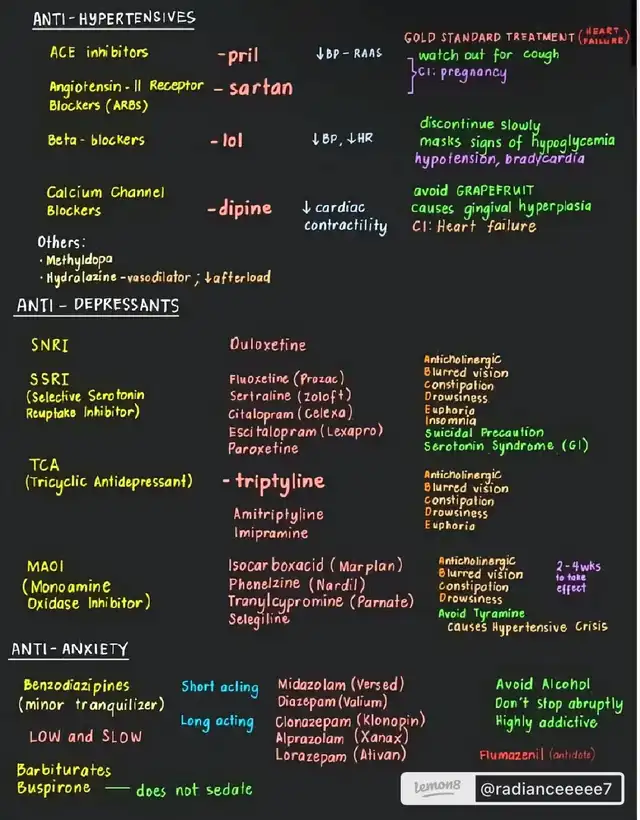 ANTI-HYPERTENSIVES
GOLD STANDARD TREATMENT (HEART FAILURE)
ACE inhibitors -pril ↓BP-RAAS watch out for cough
CI: pregnancy
Angiotensin-II Receptor - sartan
Blockers (ARBs)
Beta-blockers -lol ↓BP, ↓HR discontinue slowly
masks signs of hypoglycemia
hypotension, bradycardia
Calcium Channel
Blockers -dipine ↓cardiac
contractility
avoid GRAPEFRUIT
causes gingival hyperplasia
CI: Heart failure
Others:
• Methyldopa
• Hydralazine -vasodilator ; ↓afterload
ANTI - DEPRESSANTS
SNRI Duloxetine
SSRI
(Selective Serotonin
Reuptake Inhibitor)
Fluoxetine (Prozac)
Sertraline (Zoloft)
Citalopram (Celexa)
Escitalopram (Lexapro)
Paroxetine
Anticholinergic
Blurred vision
Constipation
Drowsiness
Euphoria
Insomnia
Suicidal Precaution
Serotonin Syndrome (GI)
TCA
(Tricyclic Antidepressant) - triptyline
Amitriptyline
Imipramine
Anticholinergic
Blurred vision
Constipation
Drowsiness
Euphoria
MAOI
(Monoamine
Oxidase Inhibitor)
Isocarboxacid (Marplan)
Phenelzine (Nardil)
Tranylcypromine (Parnate)
Selegiline
Anticholinergic
Blurred vision
Constipation
Drowsiness
Avoid Tyramine
causes Hypertensive Crisis
2-4wks
to take
effect
ANTI-ANXIETY
Benzodiazipines
(minor tranquilizer)
LOW and SLOW
Short acting
Long acting
Midazolam (Versed)
Diazepam (Valium)
Clonazepam (Klonopin)
Alprazolam (Xanax)
Lorazepam (Ativan)
Avoid Alcohol
Don't stop abruptly
Highly addictive
Flumazenil (antidote)
Barbiturates
Buspirone — does not sedate
lemon8 @radianceeeee7